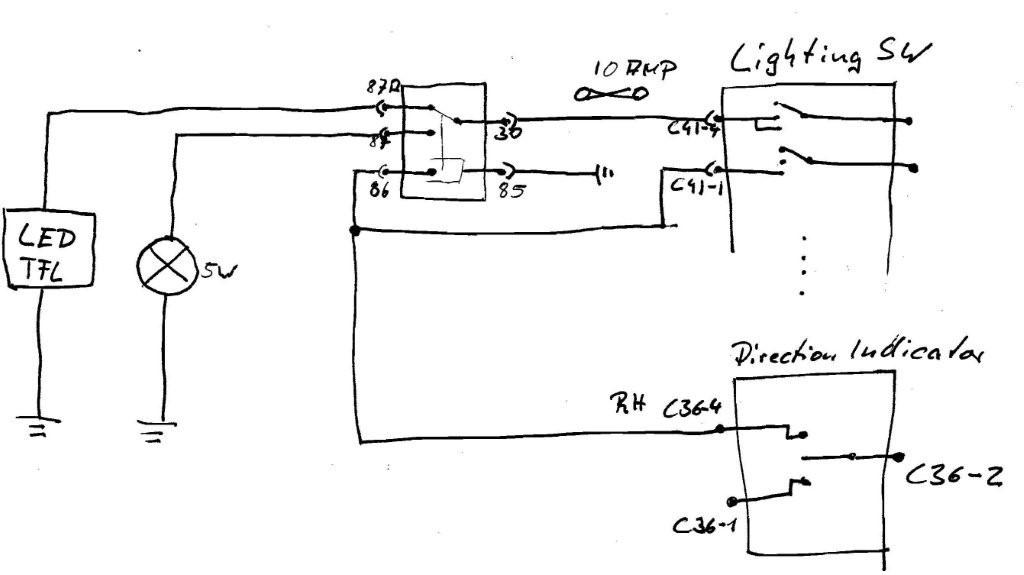 Lighting SW
10 AMP
87A
30
C41-4
87
86
85
C41-1
LED
TFL
5W
Direction Indicator
RH
C36-4
C36-2
C36-1